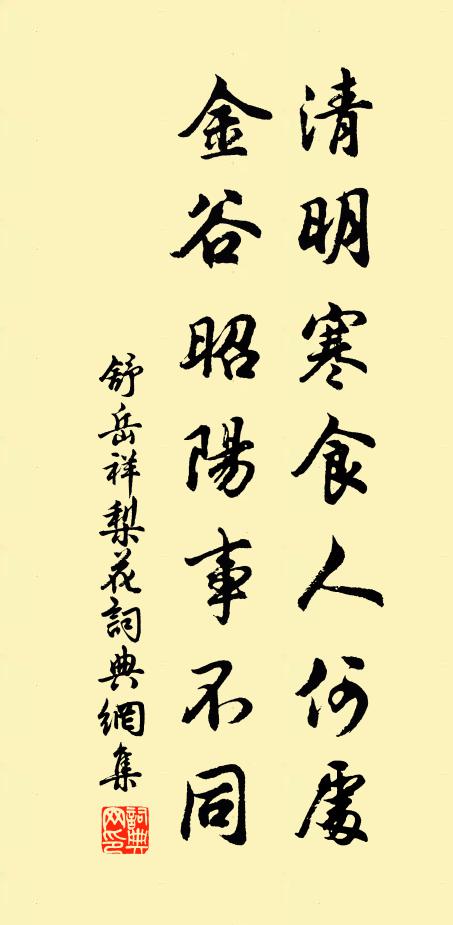 清明寒食人何處
金谷昭陽事不同
舒岳祥梨花詞典網集
詞典網印